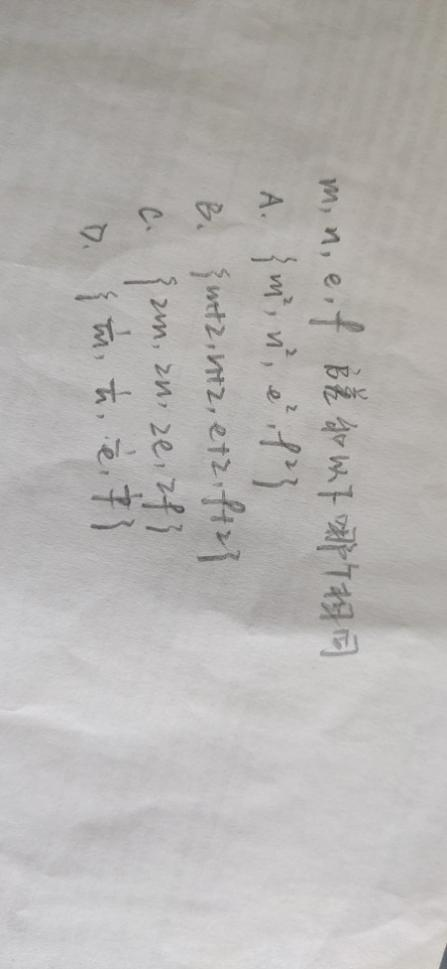 m, n, e, f 熵和以下哪个相同
A. {m², n², e², f²}
B. {m+2, n+2, e+2, f+2}
C. {2m, 2n, 2e, 2f}
D. {1/m, 1/n, 1/e, 1/f}